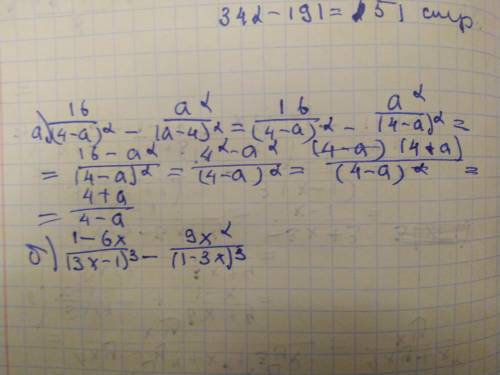 342-191=151 стр.
а) 16/(4-a)² - a²/(a-4)² = 16/(4-a)² - a²/(4-a)² =
= 16-a²/(4-a)² = 4²-a²/(4-a)² = (4-a)(4+a)/(4-a)² =
= 4+a/4-a
б) 1-6x/(3x-1)³ - 9x²/(1-3x)³